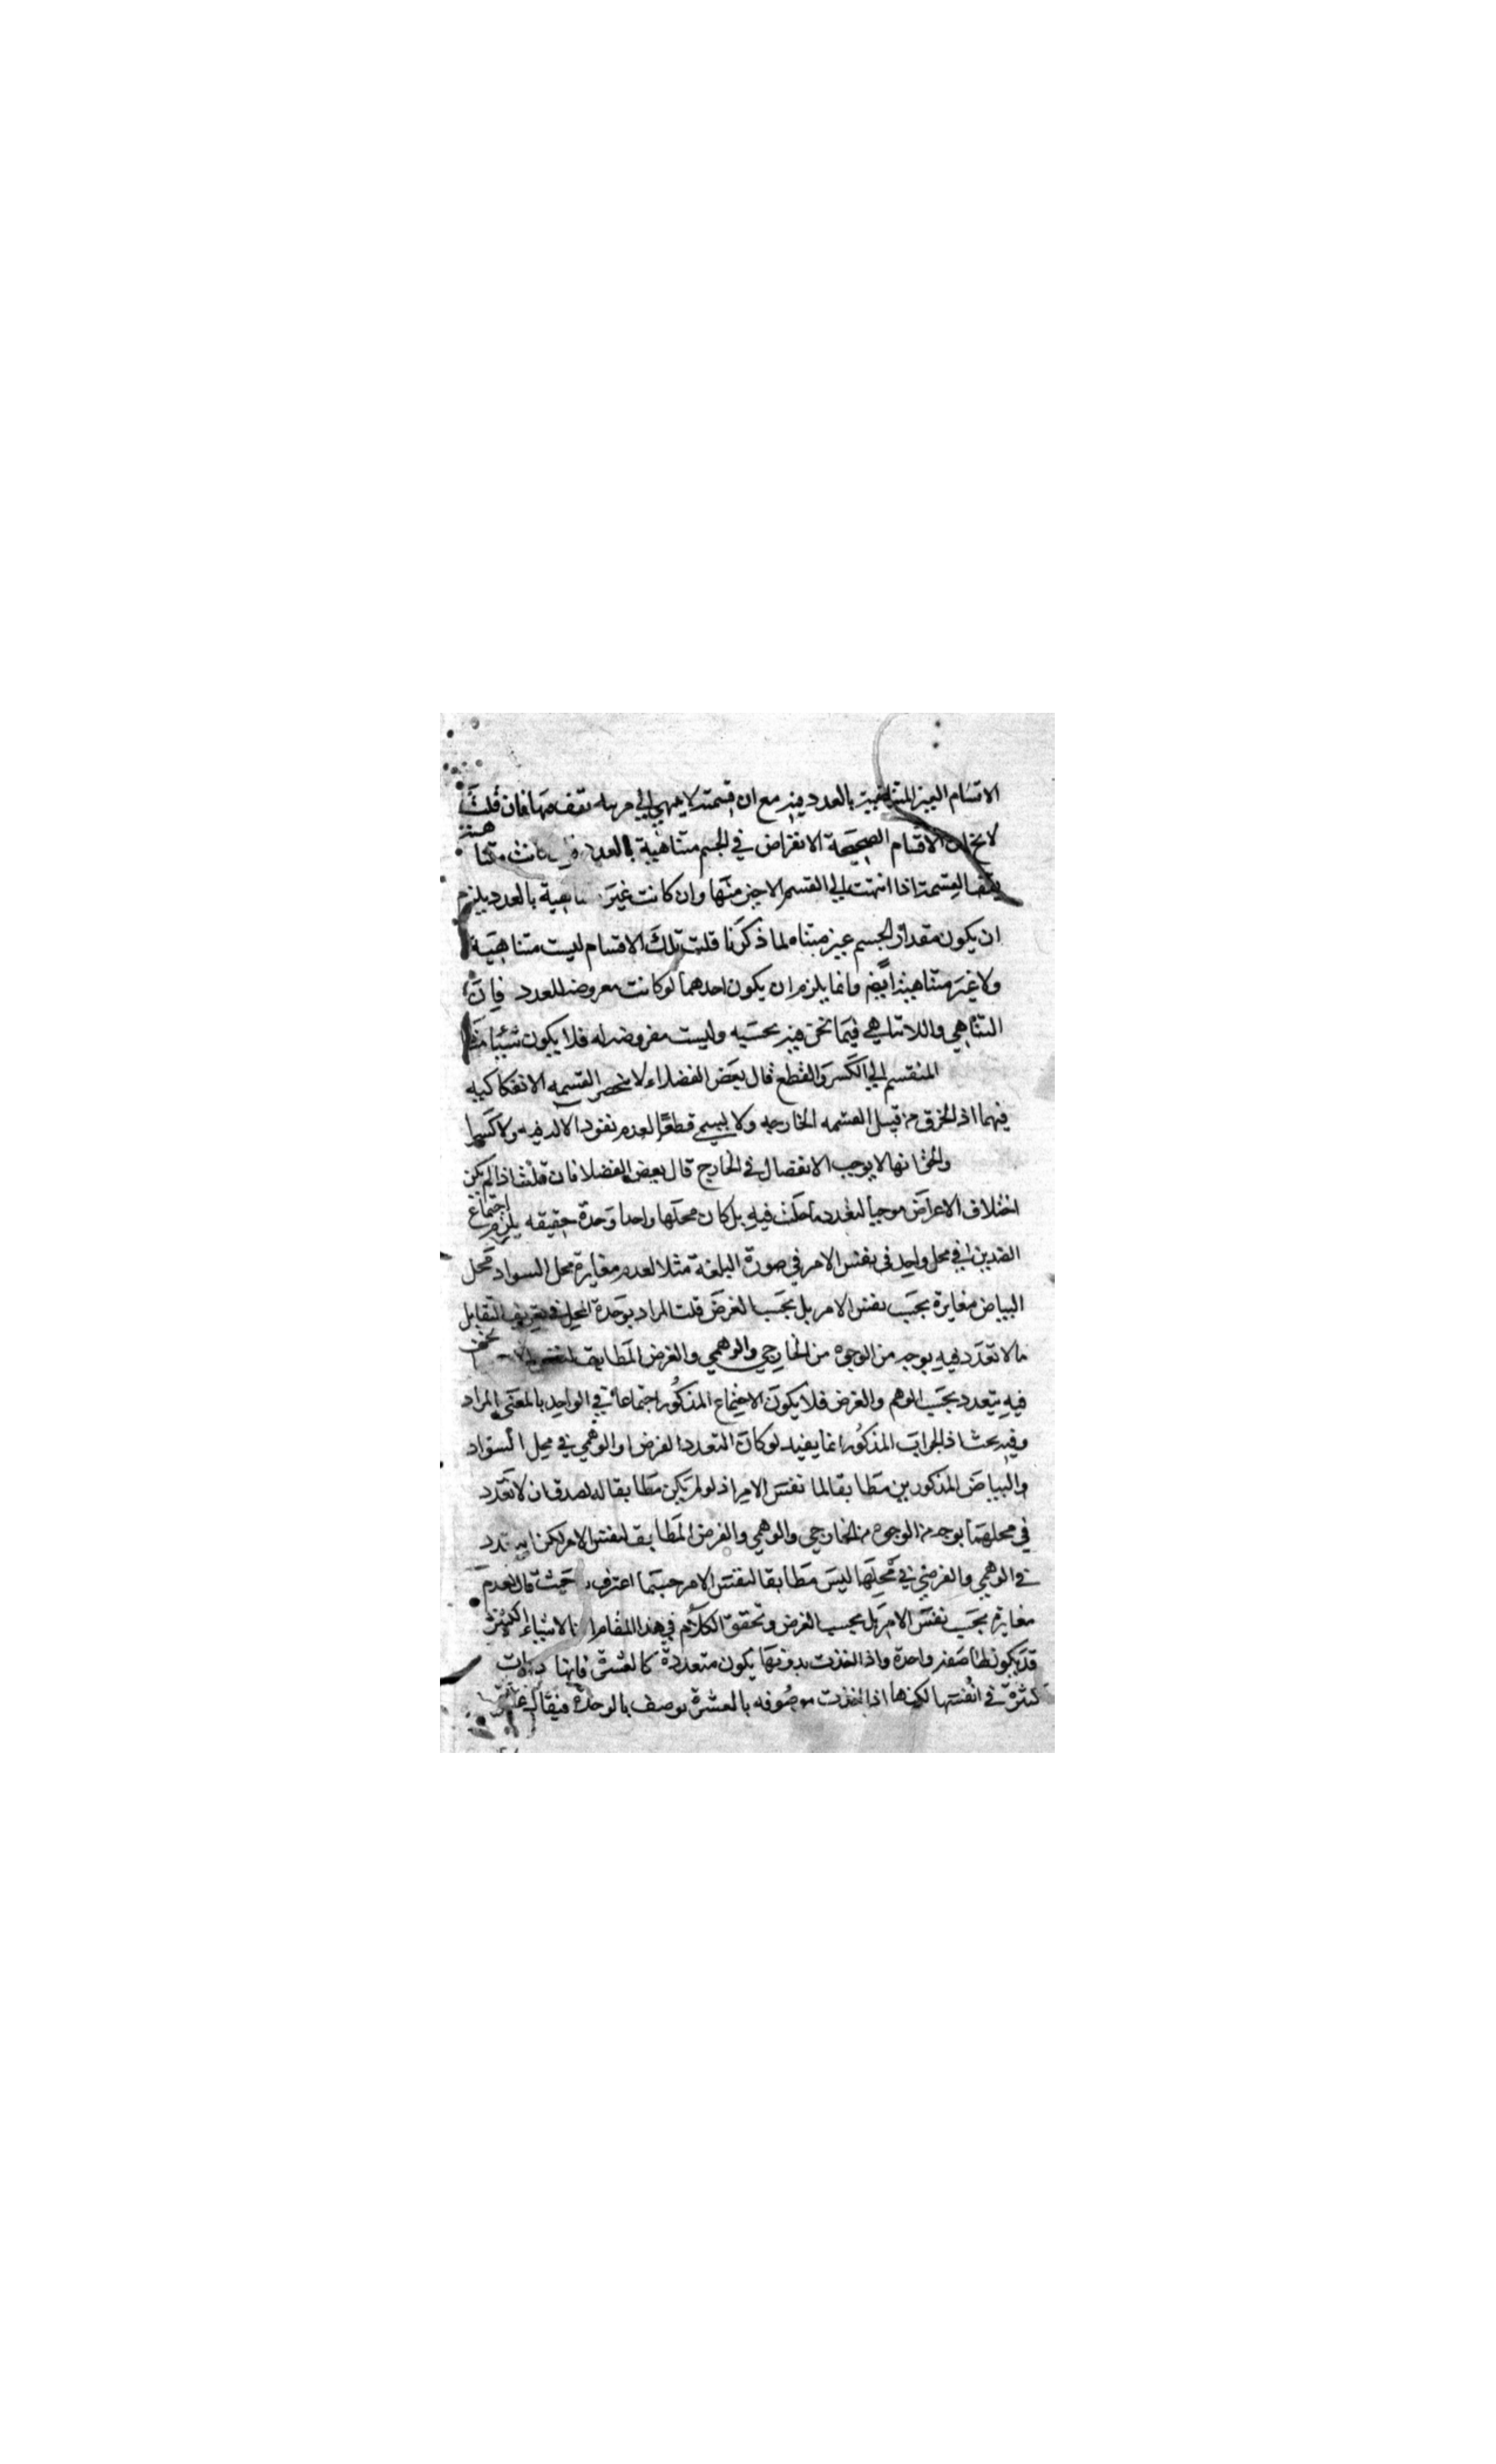 الاقسام الغير المتناهية بالعدد فيه مع ان قسمته لا ينتهي الي مرتبه تقف عندها فان قلت
لا يخ ان الاقسام الصحيحة الانفراض في الجسم متناهية بالعدد
يقف القسمة اذا انتهت الي القسم الاخير منها وان كانت غير متناهية بالعدد يلزم
ان يكون مقدار الجسم غير متناه لما ذكرنا قلت تلك الاقسام ليست متناهية
ولا غير متناهية ايضم وانما يلزم ان يكون احدهما لو كانت معروضه للعدد فان
التناهي واللاتناهي فيما نحن فيه بحسبه وليست معروضه له فلا يكون شيئا
المنقسم الي الكسر والقطع قال بعض الفضلاء لا ينحصر القسمه الانفكاكيه
فيهما اذ الخرق من قبيل القسمه الخارجيه ولا يسمي قطعا لعدم نفوذ الاله فيه ولا كسرا
والحق انها لا يوجب الانفصال في الخارج قال بعض الفضلا فان قلت اذا لم يكن
اختلاف الاعراض موجبا لتعدد ما حلت فيه بل كان محلها واحدا وحدة حقيقيه يلزم اجتماع
الضدين في محل واحد في نفس الامر في صورة البلقة مثلا لعدم مغايرة محل السواد محل
البياض مغايرة بحسب نفس الامر بل بحسب الفرض قلت المراد بوحدة المحل في تعريف التقابل
ما لا تعدد فيه بوجه من الوجوه من الخارجي والوهمي والفرضي المطابق لنفس الامر
فيه يتعدد بحسب الوهم والفرض فلا يكون الاجتماع المذكور اجتماعا في الواحد بالمعني المراد
وفيه بحث اذ الجواب المذكور انما يفيد لو كان التعدد الفرضي والوهمي في محل السواد
والبياض المذكورين مطابقا لما نفس الامر اذ لو لم يكن مطابقا له لصدق ان لا تعدد
في محلهما بوجه من الوجوه من الخارجي والوهمي والفرضي المطابق لنفس الامر لكن
في الوهمي والفرضي في محلها ليس مطابقا لنفس الامر حسبما اعترف به حيث قال لعدم
مغايرة بحسب نفس الامر بل بحسب الفرض وتحقق الكلام في هذا المقام ان الاشياء الكثيرة
قد يكون لها صفة واحدة واذا اخذت بدونها يكون متعددة كالعشرة فانها
كثرة في انفسها لكنها اذا اخذت موصوفه بالعشرة يوصف بالوحدة فيقال عشرة